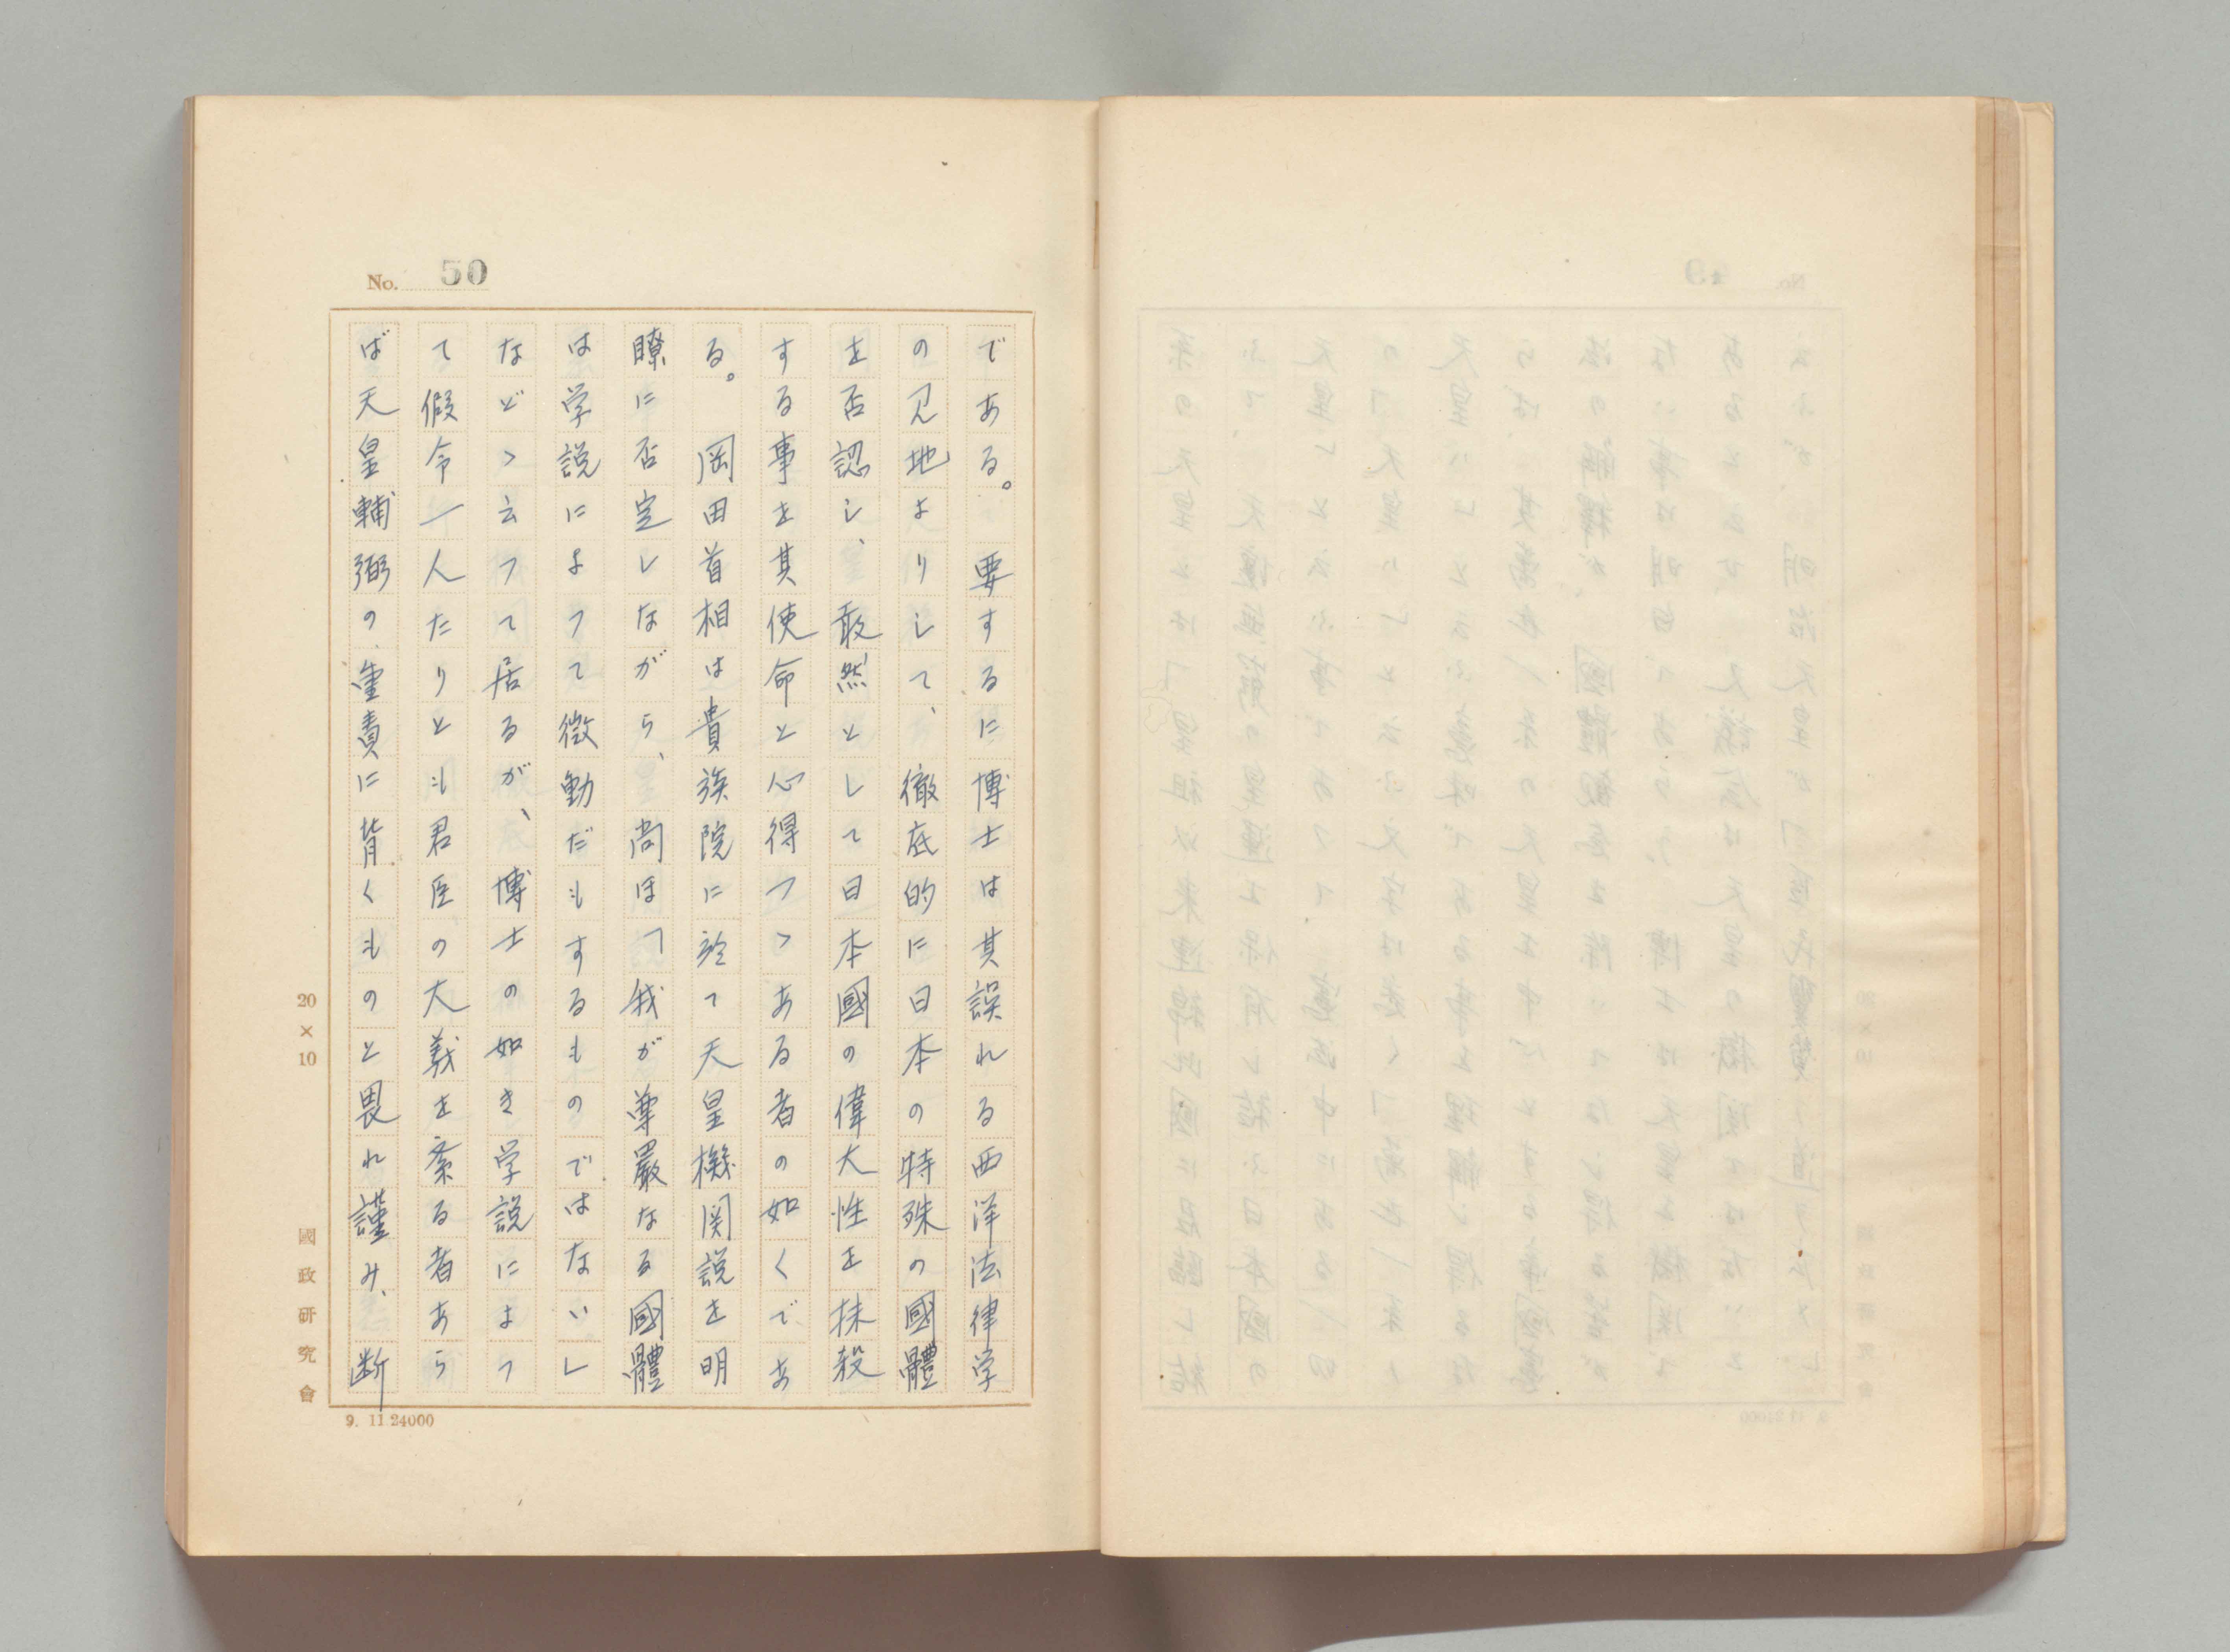 No. 50
である。 要するに博士は其誤れる西洋法律学
の見地よりして、徹底的に日本の特殊の國體
を否認し、敢然として日本國の偉大性を抹殺
する事を其使命と心得つゝある者の如くであ
る。 岡田首相は貴族院に於て天皇機関説を明
瞭に否定しながら、尚ほ「我が尊嚴なる國體
は学説によつて微動だもするものではない」
などゝ云つて居るが、博士の如き学説によつ
て假令一人たりとも君臣の大義を紊る者あら
ば天皇輔弼の重責に背くものと畏れ謹み、断
20×10
國政研究會
9. 11 24000